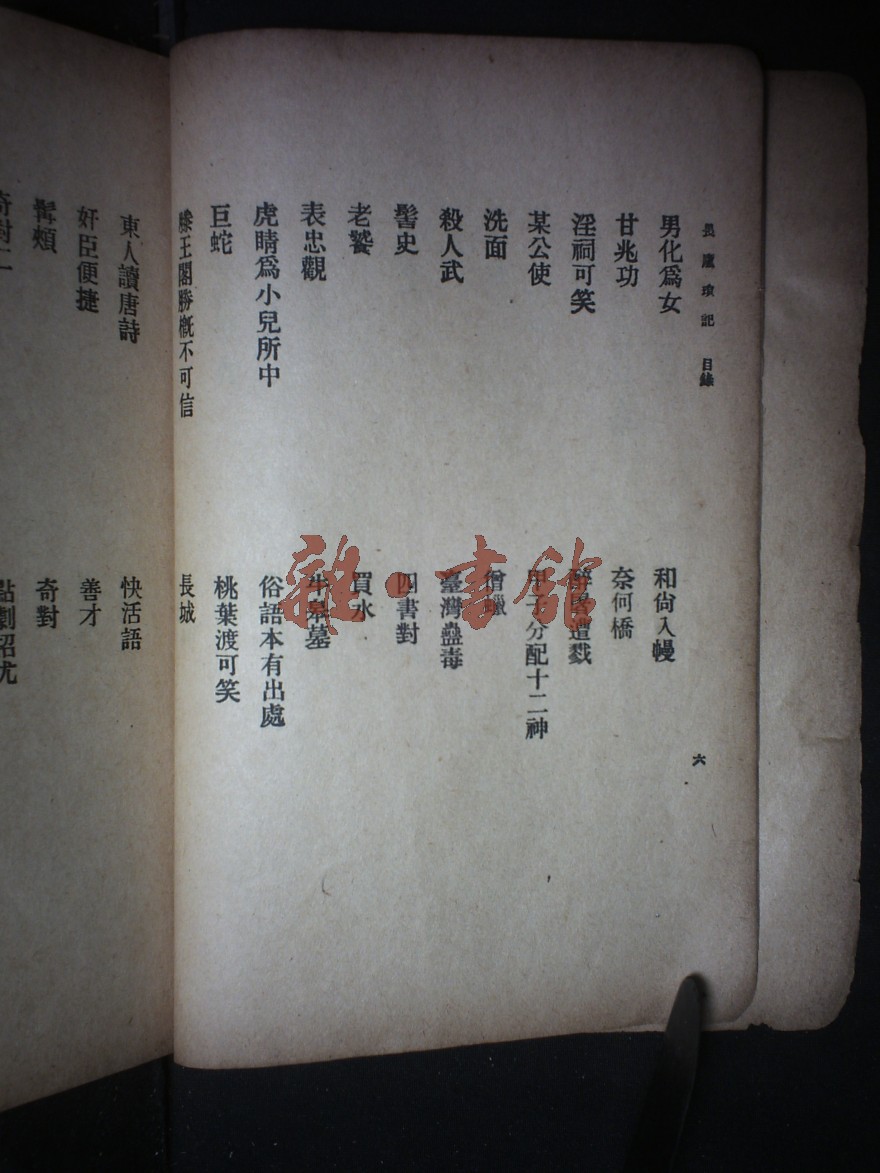 長廬瑣記 目錄
六
男化爲女
和尙入幔
甘兆功
奈何橋
淫祠可笑
醉魯遭戮
某公使
甲子分配十二神
洗面
僧蠟
殺人武
臺灣蠱毒
髻史
四書對
老饕
買水
表忠觀
牛皋墓
虎睛爲小兒所中
俗語本有出處
巨蛇
桃葉渡可笑
滕王閣勝槪不可信
長城
東人讀唐詩
快活語
奸臣便捷
善才
髯頰
奇對
奇對二
雜·書館